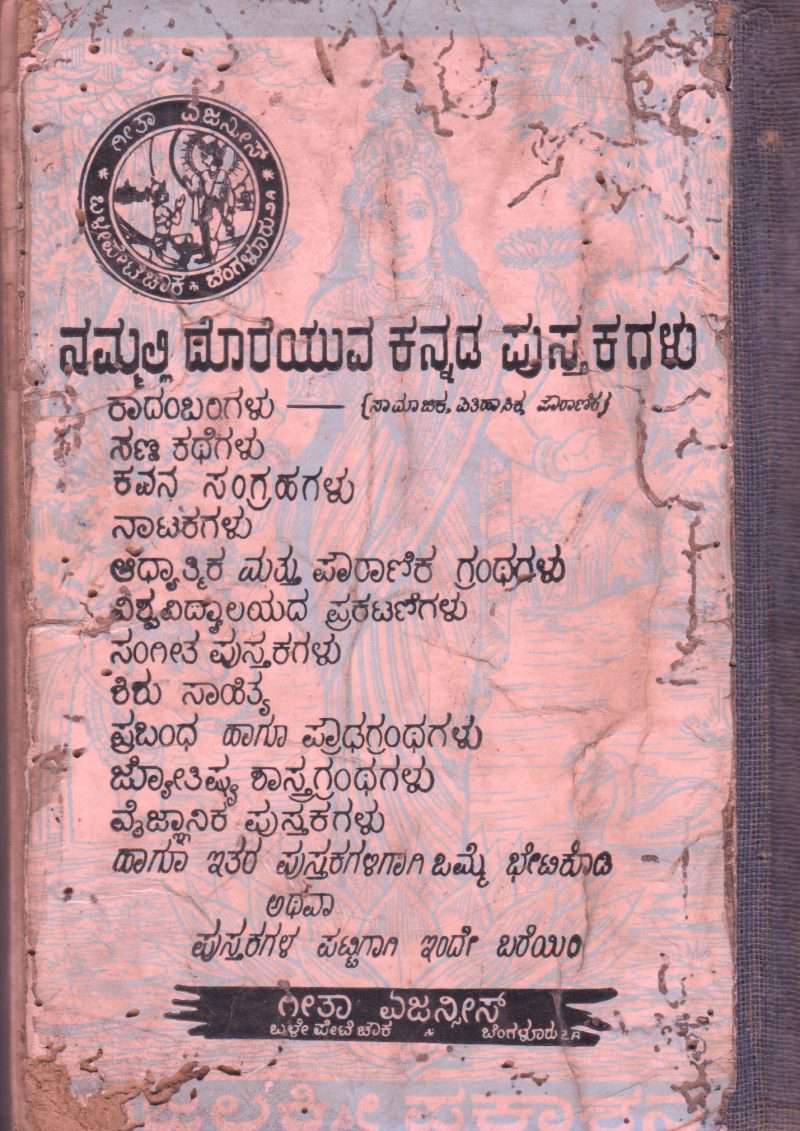 ಗೀತಾ ಏಜನ್ಸೀಸ್
ಬಳೇಪೇಟೆ ಚೌಕ * ಬೆಂಗಳೂರು ೨A
ನಮ್ಮಲ್ಲಿ ದೊರೆಯುವ ಕನ್ನಡ ಪುಸ್ತಕಗಳು
ಕಾದಂಬರಿಗಳು — (ಸಾಮಾಜಿಕ, ಐತಿಹಾಸಿಕ, ಪೌರಾಣಿಕ)
ಸಣ್ಣ ಕಥೆಗಳು
ಕವನ ಸಂಗ್ರಹಗಳು
ನಾಟಕಗಳು
ಆಧ್ಯಾತ್ಮಿಕ ಮತ್ತು ಪೌರಾಣಿಕ ಗ್ರಂಥಗಳು
ವಿಶ್ವವಿದ್ಯಾಲಯದ ಪ್ರಕಟಣೆಗಳು
ಸಂಗೀತ ಪುಸ್ತಕಗಳು
ಶಿಶು ಸಾಹಿತ್ಯ
ಪ್ರಬಂಧ ಹಾಗೂ ಪ್ರೌಢಗ್ರಂಥಗಳು
ಜ್ಯೋತಿಷ್ಯ ಶಾಸ್ತ್ರಗ್ರಂಥಗಳು
ವೈಜ್ಞಾನಿಕ ಪುಸ್ತಕಗಳು
ಹಾಗೂ ಇತರ ಪುಸ್ತಕಗಳಿಗಾಗಿ ಒಮ್ಮೆ ಭೇಟಿಕೊಡಿ
ಅಥವಾ
ಪುಸ್ತಕಗಳ ಪಟ್ಟಿಗಾಗಿ ಇಂದೇ ಬರೆಯಿರಿ
ಗೀತಾ ಏಜನ್ಸೀಸ್
ಬಳೇಪೇಟೆ ಚೌಕ * ಬೆಂಗಳೂರು 2A
ಪ್ರಕಾಶನ